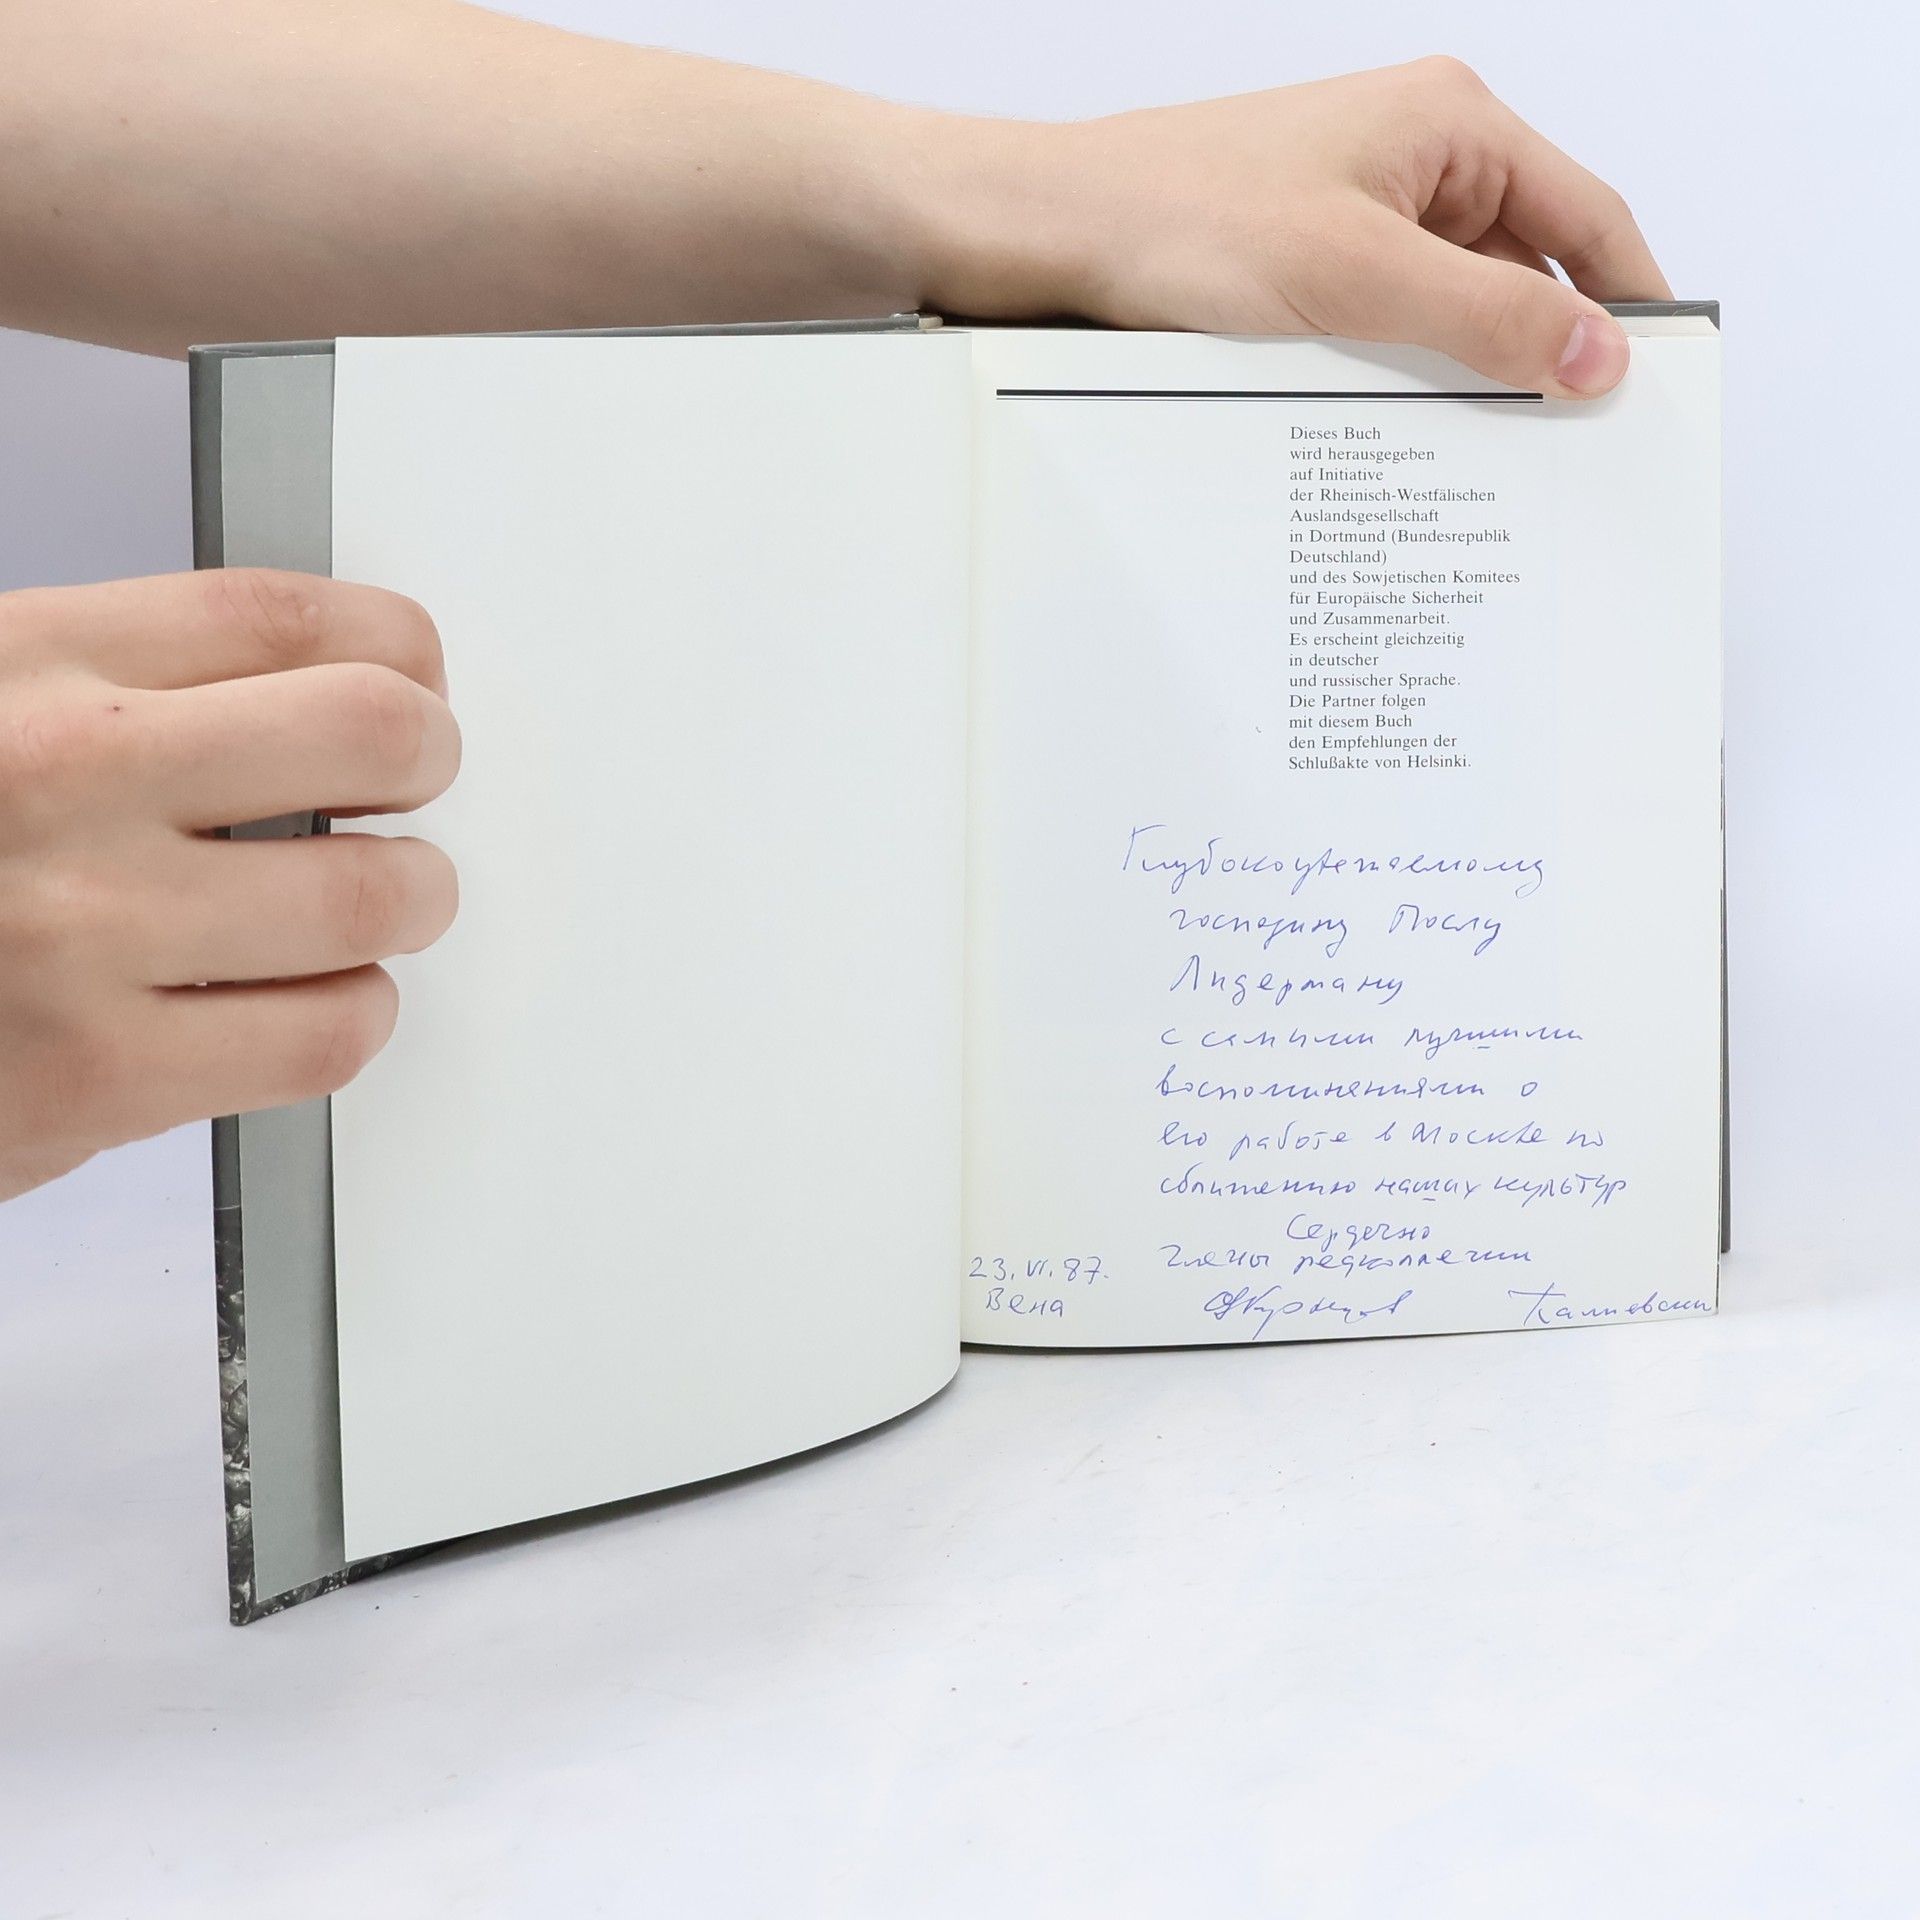 Dieses Buch
wird herausgegeben
auf Initiative
der Rheinisch-Westfälischen
Auslandsgesellschaft
in Dortmund (Bundesrepublik
Deutschland)
und des Sowjetischen Komitees
für Europäische Sicherheit
und Zusammenarbeit.
Es erscheint gleichzeitig
in deutscher
und russischer Sprache.
Die Partner folgen
mit diesem Buch
den Empfehlungen der
Schlußakte von Helsinki.
Глубокоуважаемому
господину Послу
Лидерману
с самыми лучшими
воспоминаниями о
его работе в Москве по
сближению наших культур
Сердечно
члены редколлегии
23.VI.87.
Вена